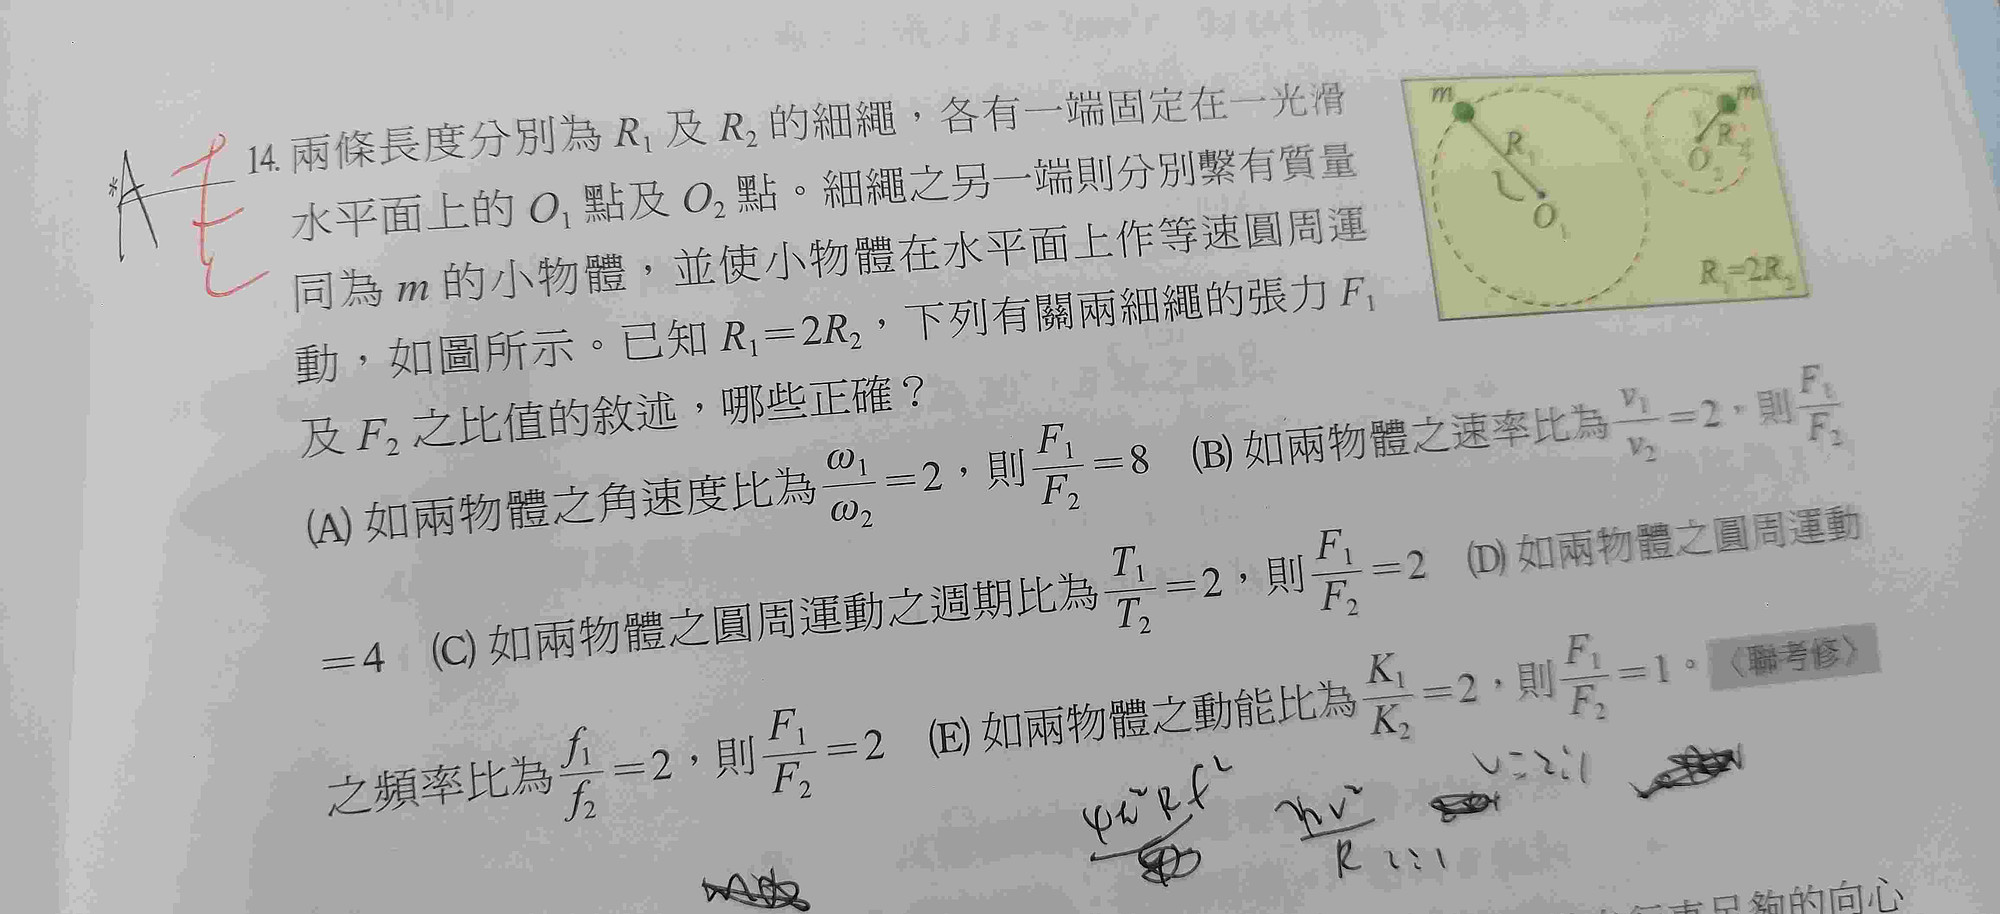 *A E
14. 兩條長度分別為 R₁ 及 R₂ 的細繩，各有一端固定在一光滑
水平面上的 O₁ 點及 O₂ 點。細繩之另一端則分別繫有質量
同為 m 的小物體，並使小物體在水平面上作等速圓周運
動，如圖所示。已知 R₁=2R₂，下列有關兩細繩的張力 F₁
及 F₂ 之比值的敘述，哪些正確？
m
R₁
O₁
m
R₂
O₂
R₁=2R₂
(A) 如兩物體之角速度比為 ω₁/ω₂=2，則 F₁/F₂=8 (B) 如兩物體之速率比為 v₁/v₂=2，則 F₁/F₂
=4 (C) 如兩物體之圓周運動之週期比為 T₁/T₂=2，則 F₁/F₂=2 (D) 如兩物體之圓周運動
之頻率比為 f₁/f₂=2，則 F₁/F₂=2 (E) 如兩物體之動能比為 K₁/K₂=2，則 F₁/F₂=1。〈聯考修〉
4π²Rf² mv²/R 2:1 v=2:1
的向心